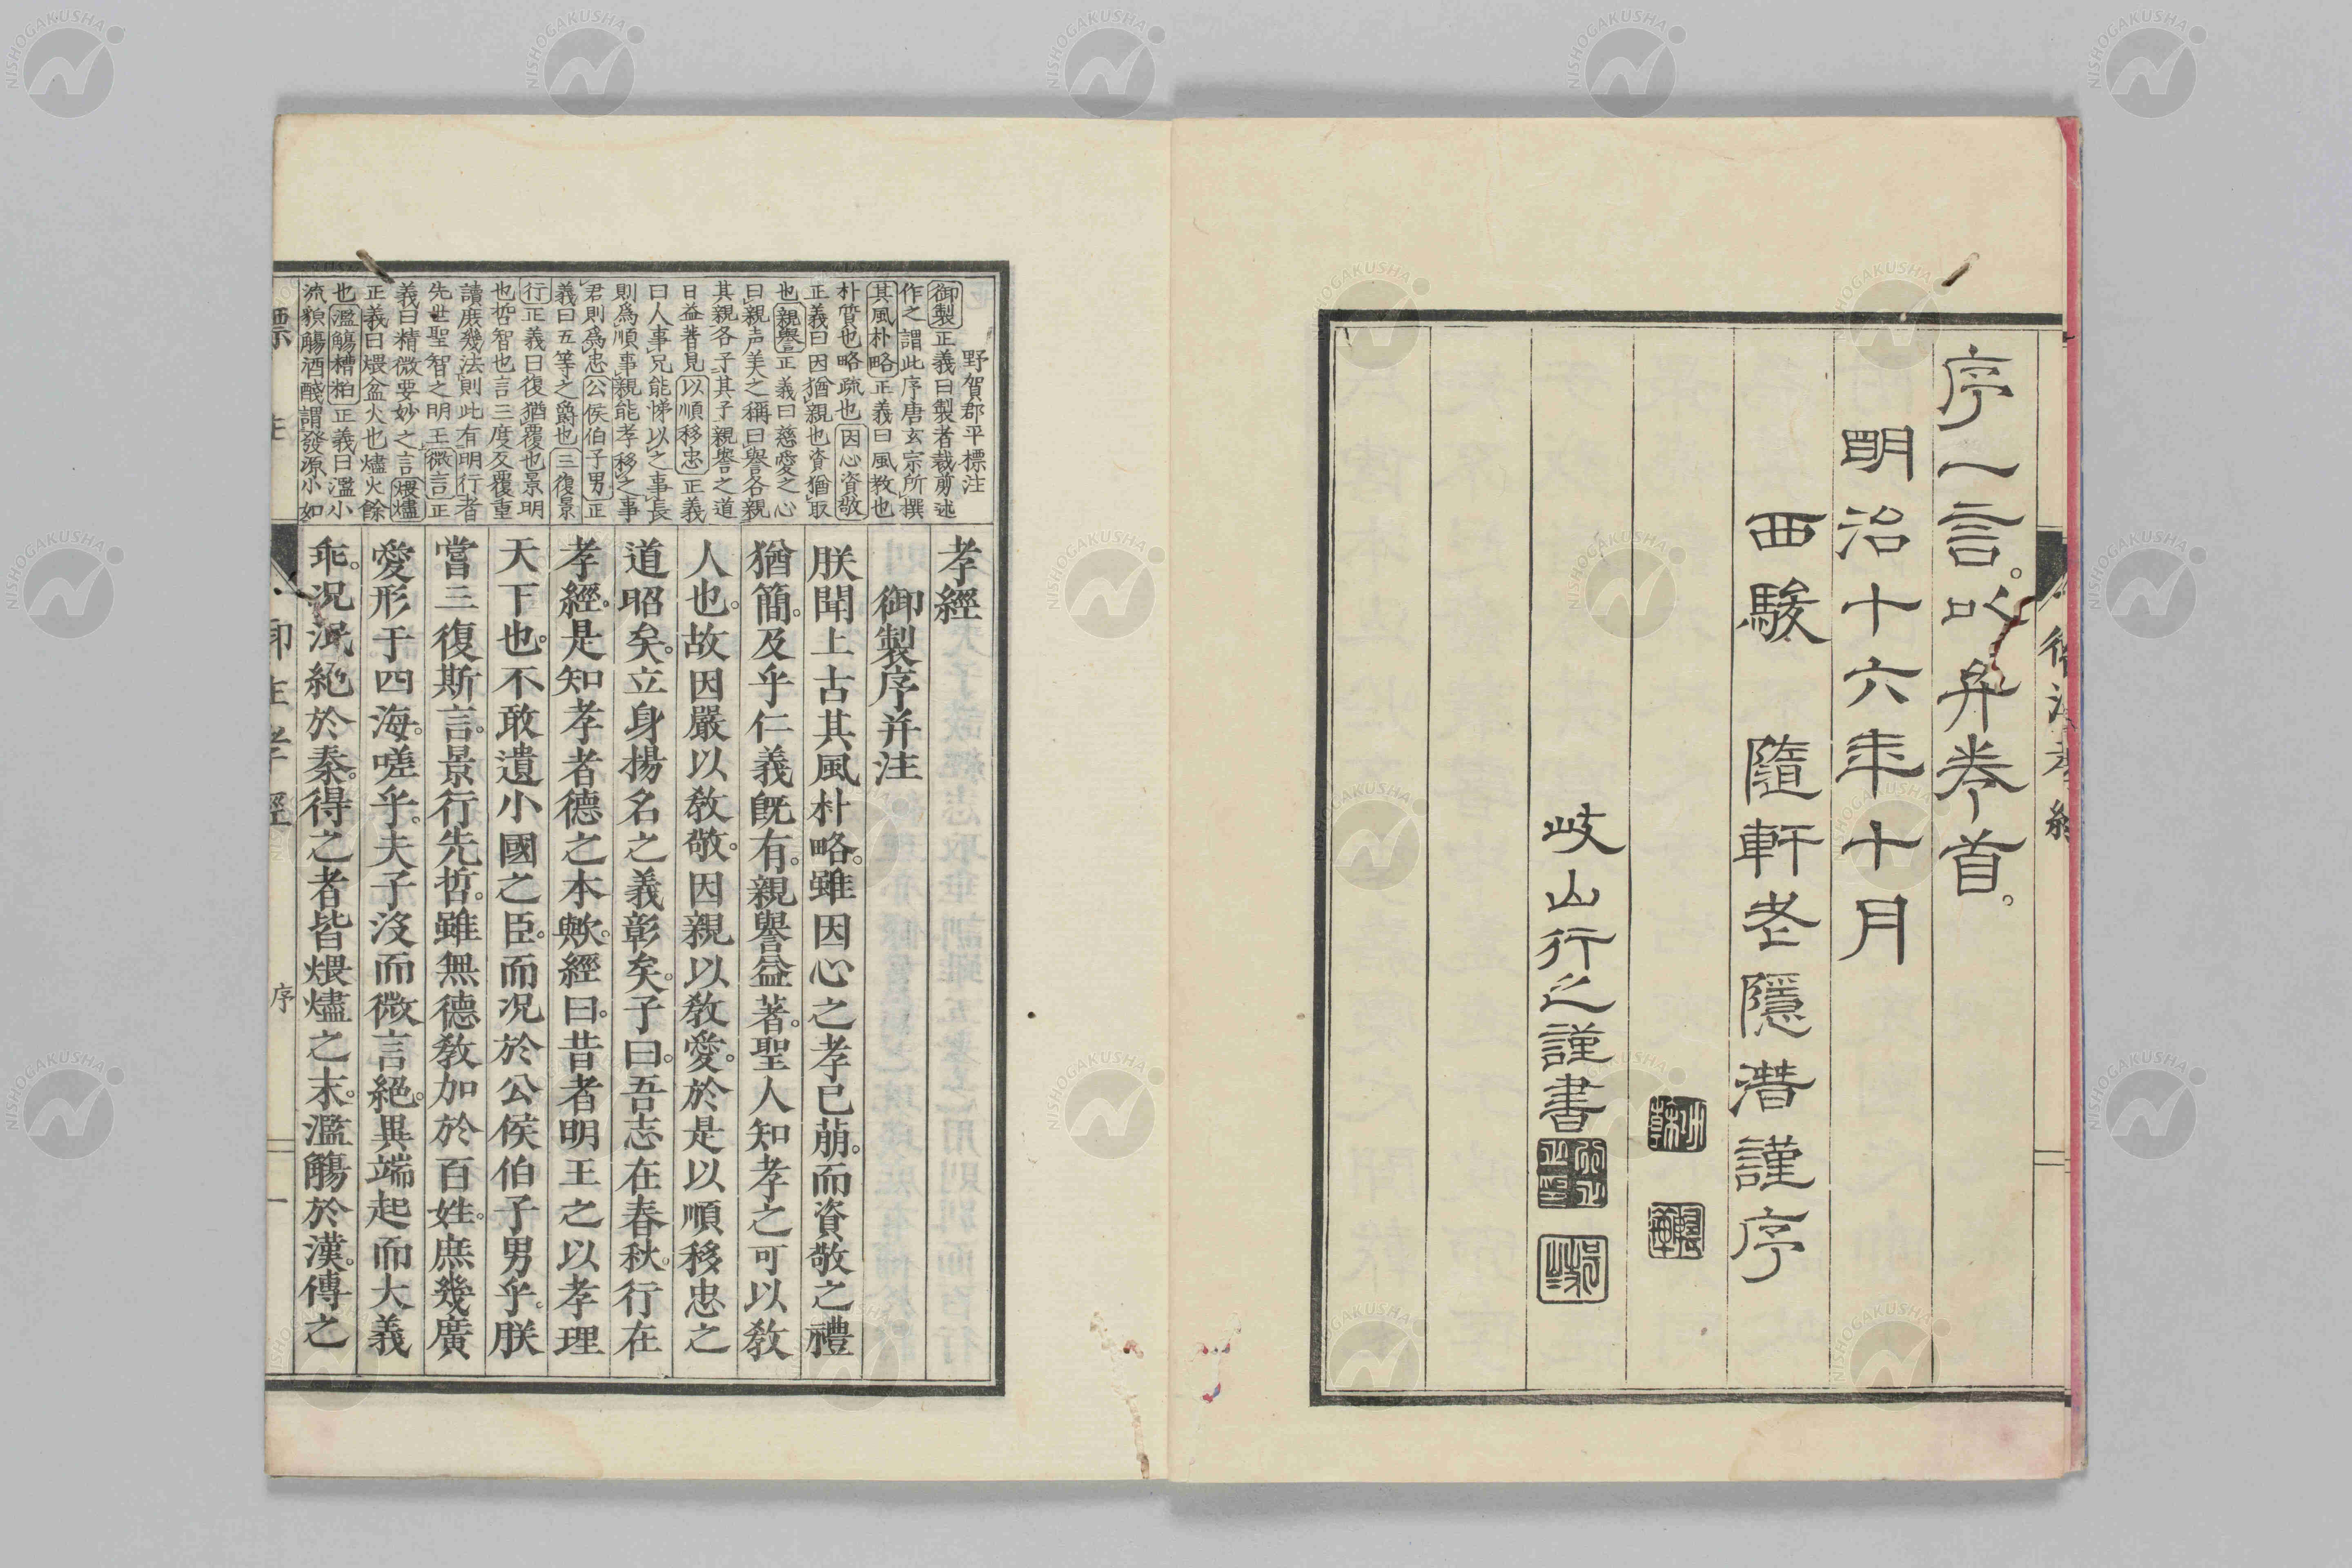 序一言。以弁卷首。
明治十六年十月
西駿 隨軒老隱潛謹序
岐山行之謹書
野賀郡平標注
御製正義曰製者裁剪述
作之謂此序唐玄宗所撰
其風朴略正義曰風教也
朴質也略疏也因心資敬
正義曰因猶親也資猶取
也親譽正義曰慈愛之心
曰親声美之稱曰譽各親
其親各子其子親譽之道
日益著見以順移忠正義
曰人事兄能悌以之事長
則爲順事親能孝移之事
君則爲忠公侯伯子男正
義曰五等之爵也三復景
行正義曰復猶覆也景明
也哲智也言三度反覆重
讀庶幾法則此有明行者
先世聖智之明王微言正
義曰精微要妙之言煨燼
正義曰煨盆火也燼火餘
也濫觴糟粕正義曰濫小
流貌觴酒醆謂發源小如
孝經
御製序并注
朕聞上古其風朴略。雖因心之孝已萠。而資敬之禮
猶簡。及乎仁義既有。親譽益著。聖人知孝之可以教
人也。故因嚴以教敬。因親以教愛。於是以順移忠之
道昭矣。立身揚名之義彰矣。子曰。吾志在春秋。行在
孝經。是知孝者德之本歟。經曰。昔者明王之以孝理
天下也。不敢遺小國之臣。而況於公侯伯子男乎。朕
嘗三復斯言。景行先哲。雖無德教加於百姓。庶幾廣
愛形于四海。嗟乎。夫子沒而微言絕。異端起而大義
乖。況泯絕於秦。得之者皆煨燼之末。濫觴於漢。傳之
序
一